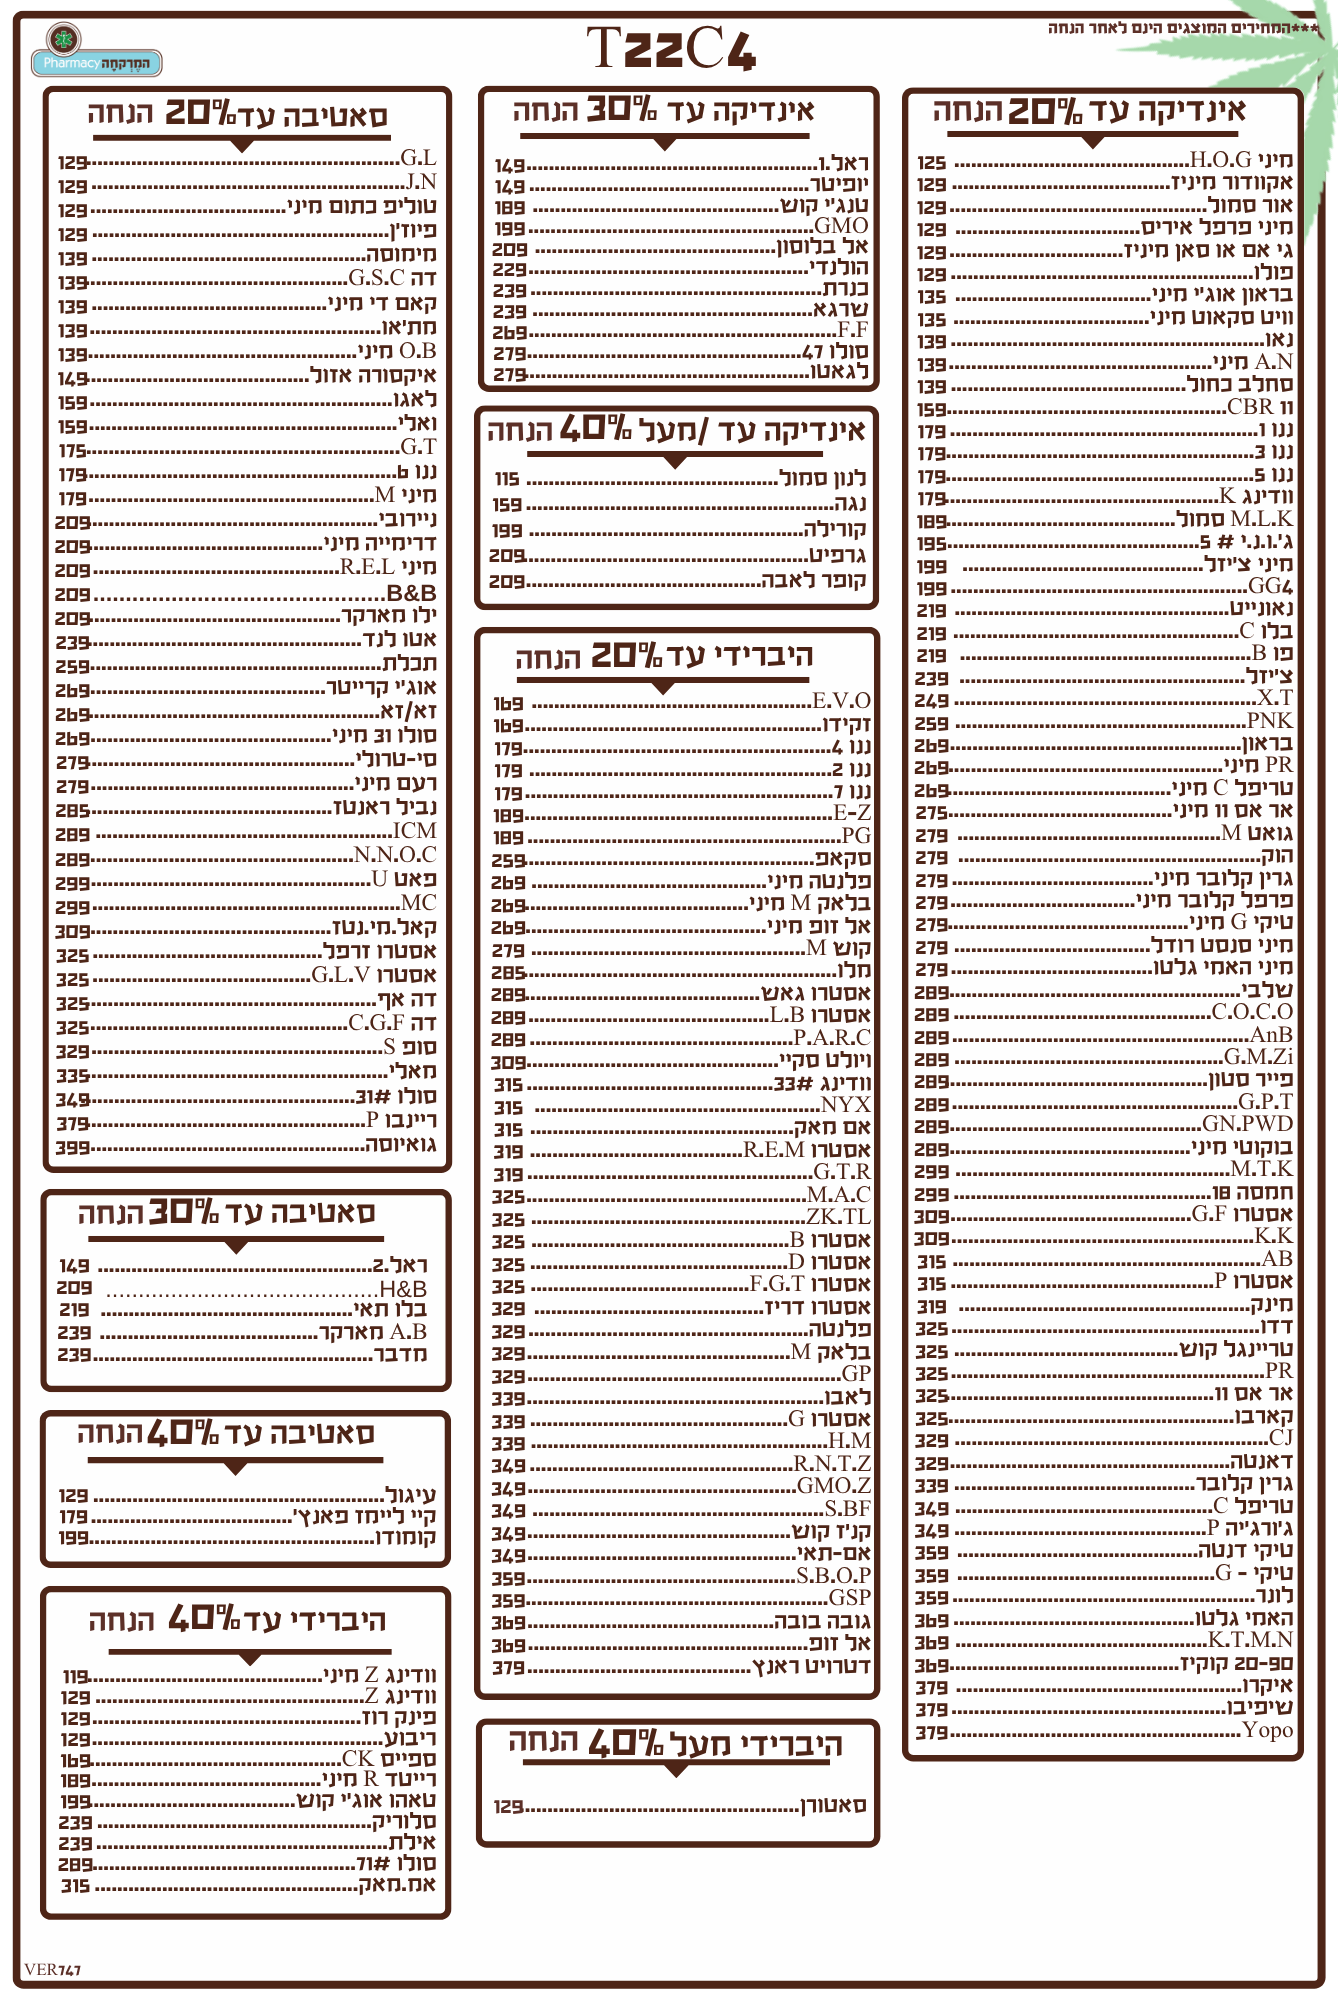 ***המחירים המוצגים הינם לאחר הנחה
T22C4
המֶרְקחָה Pharmacy
אינדיקה עד 20% הנחה
מיני H.O.G 125
אקוודור מיניז 129
אור סמול 129
מיני פרפל איריס 129
ג'י אם או סאן מיניז 129
פולו 129
בראון אוג'י מיני 135
וויט סקאוט מיני 135
נאו 139
A.N מיני 139
סחלב כחול 139
CBR 11 159
ננו 1 179
ננו 3 179
ננו 5 179
וודינג K 179
M.L.K סמול 189
ג'.ו.נ.י # 5 195
מיני צ'יזל 199
GG4 199
נאונייט 219
בלו C 219
פו B 219
צ'יזל 239
X.T 249
PNK 259
בראון 269
PR מיני 269
טריפל C מיני 269
אר אס 11 מיני 275
גואט M 279
הוק 279
גרין קלובר מיני 279
פרפל קלובר מיני 279
טיקי G מיני 279
מיני סנסט רודל 279
מיני האמי גלטו 279
שלבי 289
C.O.C.O 289
AnB 289
G.M.Zi 289
פייר סטון 289
G.P.T 289
GN.PWD 289
בוקוטי מיני 289
M.T.K 299
חמסה 18 299
אסטרו G.F 309
K.K 309
AB 315
אסטרו P 315
מינק 319
דדו 325
טריינגל קוש 325
PR 325
אר אס 11 325
קארבו 325
CJ 329
דאנטה 329
גרין קלובר 339
טריפל C 349
ג'ורג'יה P 349
טיקי דנטה 359
טיקי - G 359
לונר 359
האמי גלטו 369
K.T.M.N 369
20-90 קוקיז 369
איקרו 379
שיפיבו 379
Yopo 379
אינדיקה עד 30% הנחה
ראל.1 149
יופיטר 149
טנג'י קוש 189
GMO 199
אל בלוסון 209
הולנדי 229
כנרת 239
שרגא 239
F.F 269
סולו 47 279
לגאטו 279
אינדיקה עד /מעל 40% הנחה
לנון סמול 115
נגה 159
קורילה 199
גרפיט 209
קופר לאבה 209
היברידי עד 20% הנחה
E.V.O 169
זקידו 169
ננו 4 179
ננו 2 179
ננו 7 179
E-Z 189
PG 189
סקאפ 259
פלנטה מיני 269
בלאק M מיני 269
אל זופ מיני 269
קוש M 279
מלו 285
אסטרו גאש 289
אסטרו L.B 289
P.A.R.C 289
ויולט סקיי 309
וודינג #33 315
NYX 315
אם מאק 315
אסטרו R.E.M 319
G.T.R 319
M.A.C 325
ZK.TL 325
אסטרו B 325
אסטרו D 325
אסטרו F.G.T 325
אסטרו דריז 329
פלנטה 329
בלאק M 329
GP 329
לאבו 339
אסטרו G 339
H.M 339
R.N.T.Z 349
GMO.Z 349
S.BF 349
קנ'ז קוש 349
אם-תאי 349
S.B.O.P 359
GSP 359
גובה בובה 369
אל זופ 369
דטרויט ראנץ 379
היברידי מעל 40% הנחה
סאטורן 129
סאטיבה עד 20% הנחה
G.L 129
J.N 129
טוליפ כתום מיני 129
פיוז'ן 129
מימוסה 139
דה G.S.C 139
קאם די מיני 139
מת'או 139
O.B מיני 139
איקסורה אזול 149
לאגו 159
ואלי 159
G.T 175
ננו 6 179
מיני M 179
ניירובי 209
דרימייה מיני 209
מיני R.E.L 209
B&B 209
ילו מארקר 209
אטו לנד 239
תכלת 259
אוג'י קרייטר 269
זא/זא 269
סולו 31 מיני 269
סי-טרולי 279
רעם מיני 279
נביל ראנטז 285
ICM 289
N.N.O.C 289
פאט U 299
MC 299
קאל.מי.נטז 309
אסטרו זרפל 325
אסטרו G.L.V 325
דה אף 325
דה C.G.F 325
סופ S 329
מאלי 335
סולו #31 349
ריינבו P 379
גואיוסה 399
סאטיבה עד 30% הנחה
ראל.2 149
H&B 209
בלו תאי 219
A.B מארקר 239
מדבר 239
סאטיבה עד 40% הנחה
עיגול 129
קיי ליימז פאנץ' 179
קומודו 199
היברידי עד 40% הנחה
וודינג Z מיני 119
וודינג Z 129
פינק רוז 129
ריבוע 129
ספייס CK 169
רייטד R מיני 189
טאהו אוג'י קוש 199
סלוריק 239
אילת 239
סולו #71 289
אמ.מאק 315
VER747